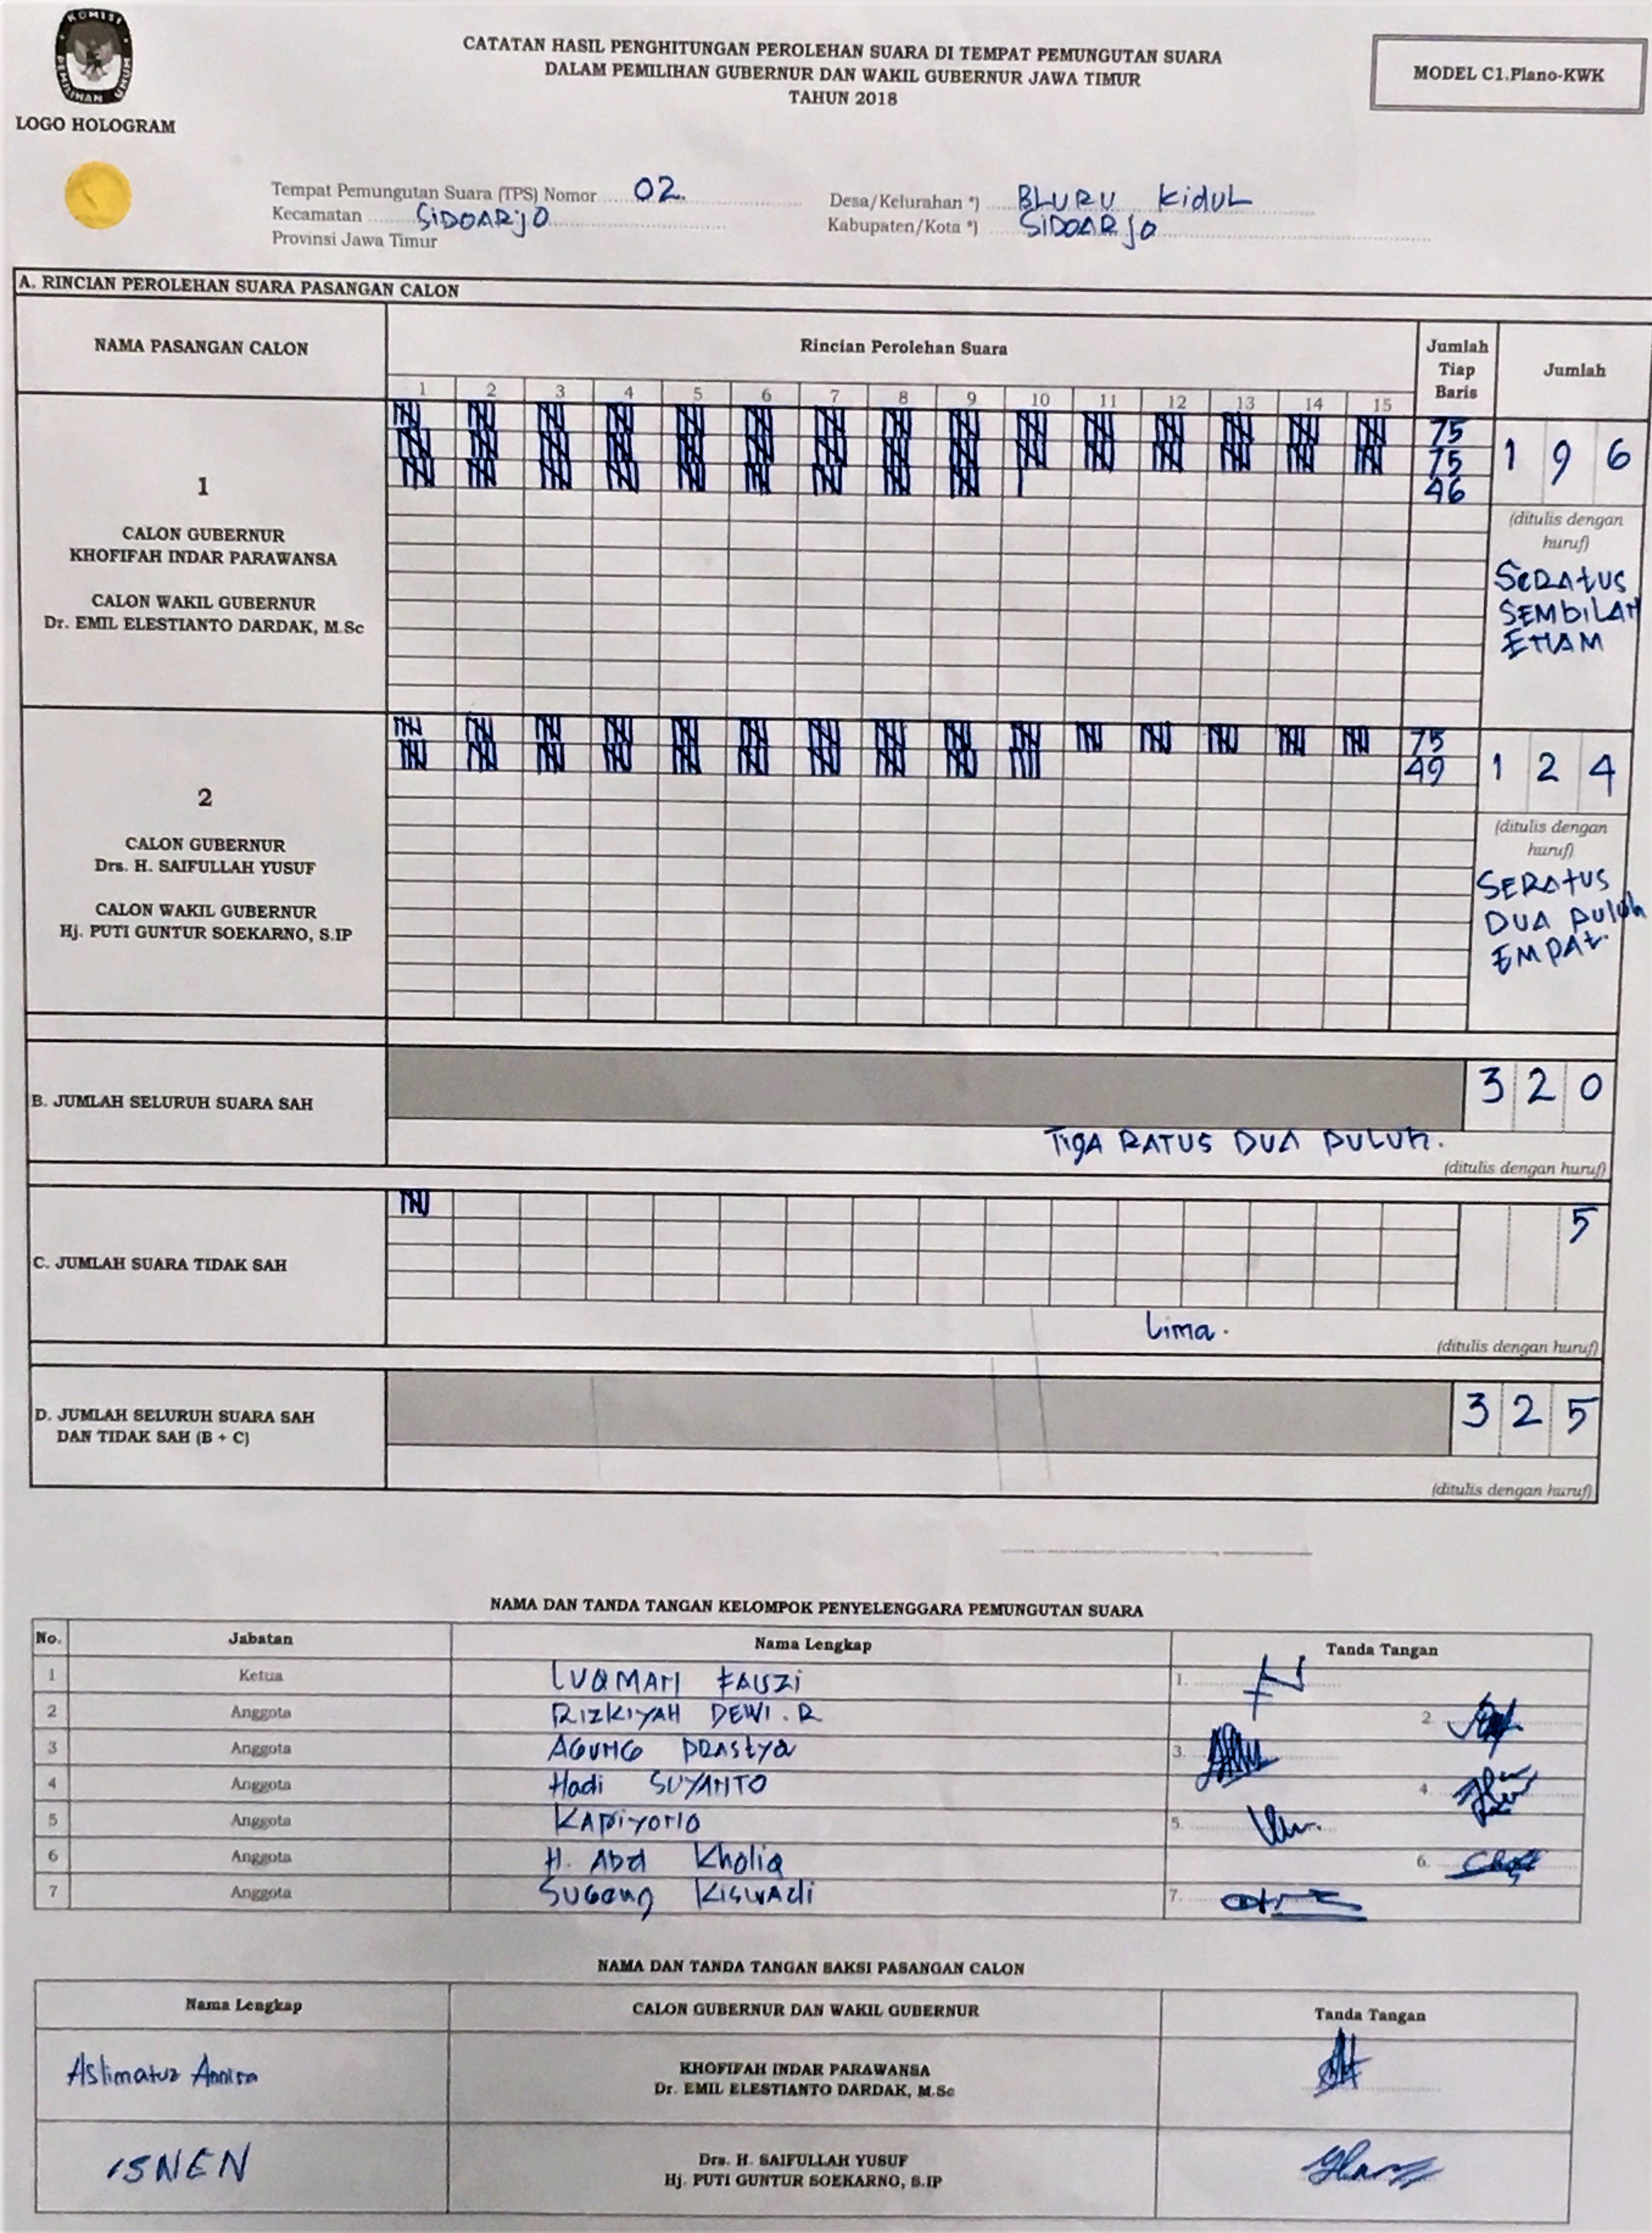 KOMISI PEMILIHAN UMUM
CATATAN HASIL PENGHITUNGAN PEROLEHAN SUARA DI TEMPAT PEMUNGUTAN SUARA
DALAM PEMILIHAN GUBERNUR DAN WAKIL GUBERNUR JAWA TIMUR
TAHUN 2018
MODEL C1.Plano-KWK
LOGO HOLOGRAM
Tempat Pemungutan Suara (TPS) Nomor 02.
Desa/Kelurahan *) BLURU KiduL
Kecamatan SiDOARjO
Kabupaten/Kota *) SiDOARjo
Provinsi Jawa Timur
A. RINCIAN PEROLEHAN SUARA PASANGAN CALON
NAMA PASANGAN CALON
Rincian Perolehan Suara
Jumlah
Tiap
Baris
Jumlah
1 2 3 4 5 6 7 8 9 10 11 12 13 14 15
1
CALON GUBERNUR
KHOFIFAH INDAR PARAWANSA
CALON WAKIL GUBERNUR
Dr. EMIL ELESTIANTO DARDAK, M.Sc
75
75
46
1 9 6
(ditulis dengan
huruf)
SeRAtUS
SEMbiLAN
ENAM
2
CALON GUBERNUR
Drs. H. SAIFULLAH YUSUF
CALON WAKIL GUBERNUR
Hj. PUTI GUNTUR SOEKARNO, S.IP
75
49
1 2 4
(ditulis dengan
huruf)
SERAtUS
DUA puluh
EMPAt.
B. JUMLAH SELURUH SUARA SAH
3 2 0
TigA RATUS DUA PULUh.
(ditulis dengan huruf)
C. JUMLAH SUARA TIDAK SAH
5
Lima.
(ditulis dengan huruf)
D. JUMLAH SELURUH SUARA SAH
DAN TIDAK SAH (B + C)
3 2 5
(ditulis dengan huruf)
NAMA DAN TANDA TANGAN KELOMPOK PENYELENGGARA PEMUNGUTAN SUARA
No. Jabatan Nama Lengkap Tanda Tangan
1 Ketua LUQMAN FAUZi 1.
2 Anggota RIZKIYAH DEWI.R 2
3 Anggota AGUNG PRAStya 3.
4 Anggota Hadi SUYANTO 4.
5 Anggota KARiyoNo 5.
6 Anggota H. Abd Kholiq 6.
7 Anggota SUGeng KISWAdi 7.
NAMA DAN TANDA TANGAN SAKSI PASANGAN CALON
Nama Lengkap CALON GUBERNUR DAN WAKIL GUBERNUR Tanda Tangan
Aslimatuz Annisa
KHOFIFAH INDAR PARAWANSA
Dr. EMIL ELESTIANTO DARDAK, M.Sc
ISNEN
Drs. H. SAIFULLAH YUSUF
Hj. PUTI GUNTUR SOEKARNO, S.IP